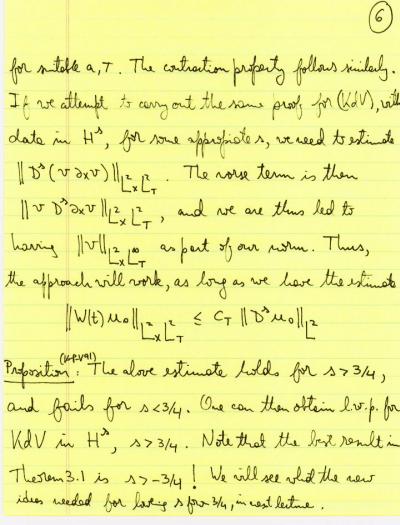 6
for suitable a, T. The contraction property follows similarly.
If we attempt to carry out the same proof for (KdV), with
data in H^s, for some appropiate s, we need to estimate
‖D^s(v ∂_x v)‖_{L^2_x L^2_T}. The worse term is then
‖v D^s ∂_x v‖_{L^2_x L^2_T}, and we are thus led to
having ‖v‖_{L^2_x L^∞_T} as part of our norm. Thus,
the approach will work, as long as we have the estimate
‖W(t) u_0‖_{L^2_x L^2_T} ≤ C_T ‖D^s u_0‖_{L^2}
(K-P-V 91)
Proposition: The above estimate holds for s > 3/4,
and fails for s < 3/4. One can then obtain l.w.p. for
KdV in H^s, s > 3/4. Note that the best result in
Theorem 3.1 is s > -3/4! We will see what the new
ideas needed for s from 3/4, in next lecture.